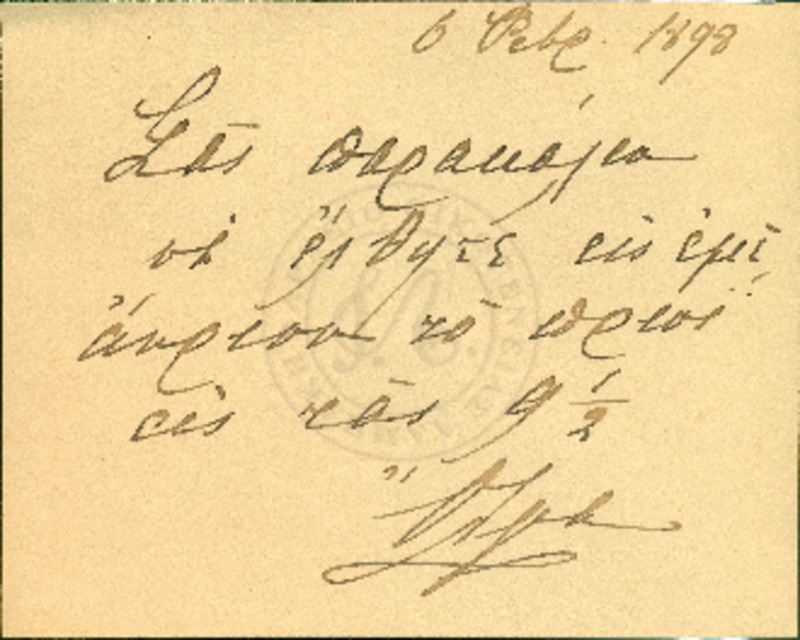 6 Φεβρ. 1898
Σᾶς παρακαλῶ
νὰ ἔλθητε εἰς ἐμὲ
αὔριον τὸ πρωί
εἰς τὰς 9 1/2